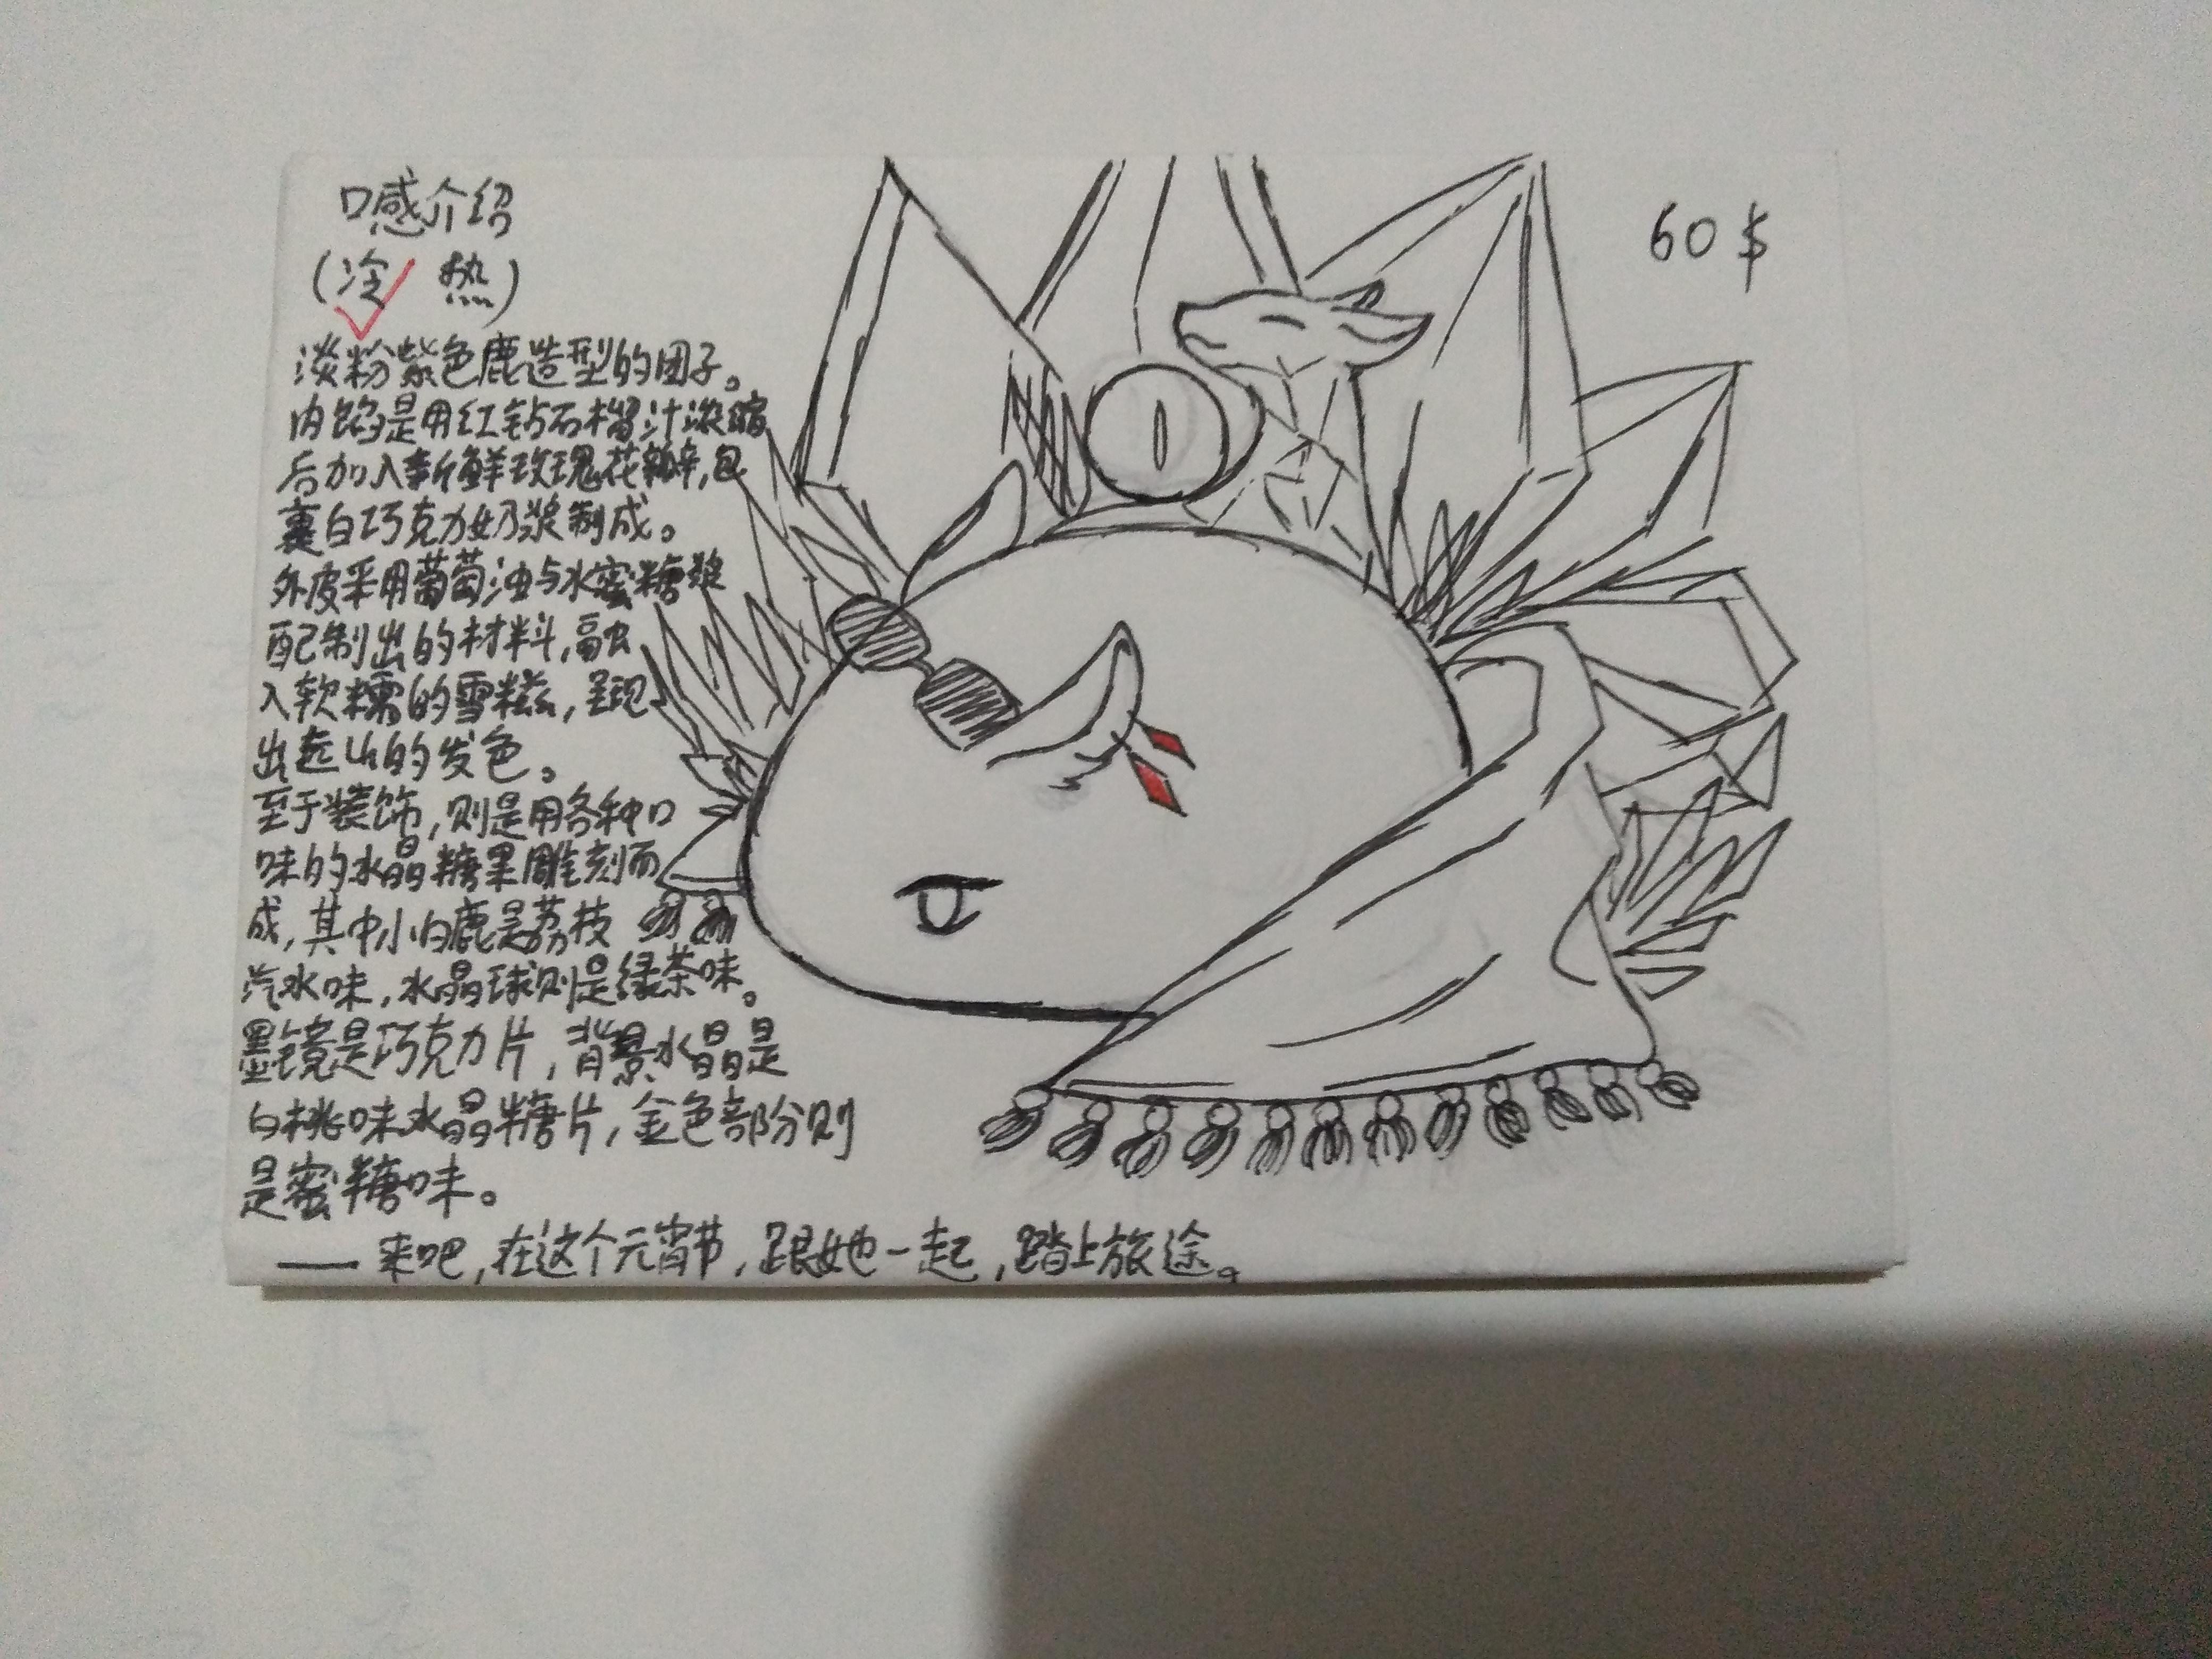 口感介绍
60$
(冷 热)
淡粉紫色鹿造型的团子。
内馅是用红钻石榴汁浓缩
后加入新鲜玫瑰花瓣,包
裹白巧克力奶浆制成。
外皮采用葡萄浊与水蜜糖浆
配制出的材料,融
入软糯的雪糍,呈现
出起山的发色。
至于装饰,则是用各种口
味的水晶糖果雕刻而
成,其中小白鹿是荔枝
汽水味,水晶球则是绿茶味。
墨镜是巧克力片,背景水晶是
白桃味水晶糖片,金色部分则
是蜜糖味。
——来吧,在这个元宵节,跟她一起,踏上旅途。